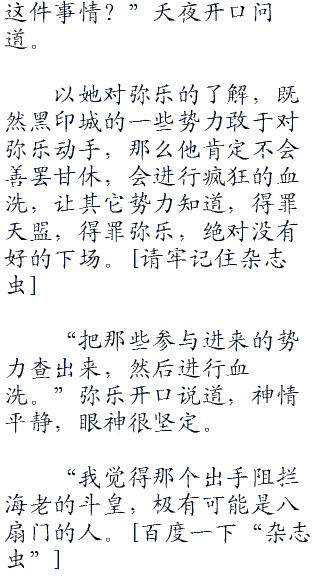 这件事情？”天夜开口问
道。
以她对弥乐的了解，既
然黑印城的一些势力敢于对
弥乐动手，那么他肯定不会
善罢甘休，会进行疯狂的血
洗，让其它势力知道，得罪
天盟，得罪弥乐，绝对没有
好的下场。[请牢记住杂志
虫]
“把那些参与进来的势
力查出来，然后进行血
洗。”弥乐开口说道，神情
平静，眼神很坚定。
“我觉得那个出手阻拦
海老的斗皇，极有可能是八
扇门的人。[百度一下“杂志
虫”]